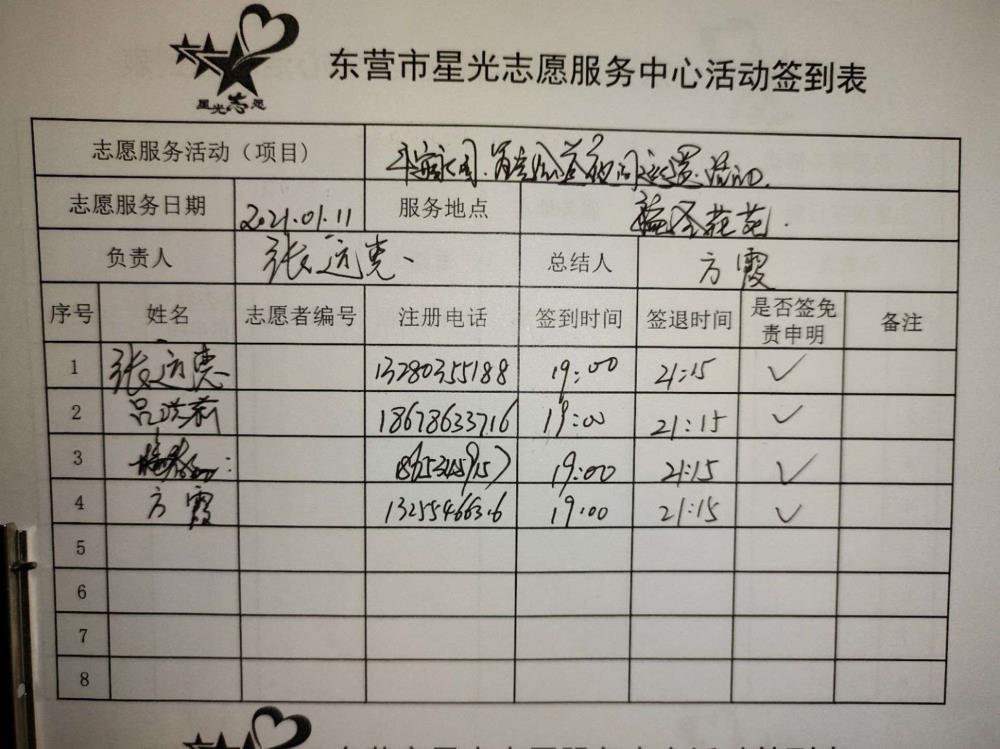 星光志愿
东营市星光志愿服务中心活动签到表
志愿服务活动（项目）
志愿服务日期 2021.01.11 服务地点
负责人 张远惠 总结人 方霞
序号 姓名 志愿者编号 注册电话 签到时间 签退时间 是否签免责申明 备注
1 张远惠 13280355188 19:00 21:15 ✓
2 吕洪莉 18678633716 19:00 21:15 ✓
3 19:00 21:15 ✓
4 方霞 13255466316 19:00 21:15 ✓
5
6
7
8